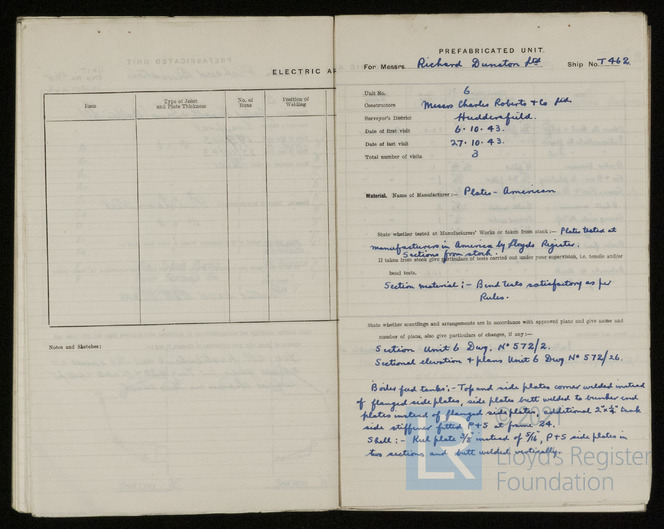 ELECTRIC A
Item
Type of Joint
and Plate Thickness
No. of
Runs
Position of
Welding
Notes and Sketches:
PREFABRICATED UNIT.
For Messrs. Richard Dunston Ltd Ship No. T 462
Unit No. 6.
Constructors Messrs Charles Roberts & Co Ltd.
Surveyor's District Huddersfield.
Date of first visit 6.10.43.
Date of last visit 27.10.43.
Total number of visits 3
Material. Name of Manufacturer:— Plates - American
State whether tested at Manufacturers' Works or taken from stock:— Plates tested at
manufacturers in America by Lloyds Register.
Sections from stock.
If taken from stock give particulars of tests carried out under your supervision, i.e. tensile and/or
bend tests.
Section material:- Bend tests satisfactory as per
Rules.
State whether scantlings and arrangements are in accordance with approved plans and give name and
number of plans, also give particulars of changes, if any:—
Section Unit 6 Dwg. No 572/2.
Sectional elevation & plans Unit 6 Dwg No 572/26.
Boiler feed tanks:- Top and side plates corner welded instead
of flanged side plates, side plates butt welded to bunker end
plates instead of flanged side plates, additional 2" x ¼"
side stiffener fitted P & S at frame 24.
Shell:- Keel plate 3/8" instead of 5/16", P & S side plates in
two sections and butt welded vertically.
© 2021
LR
Lloyd's Register
Foundation